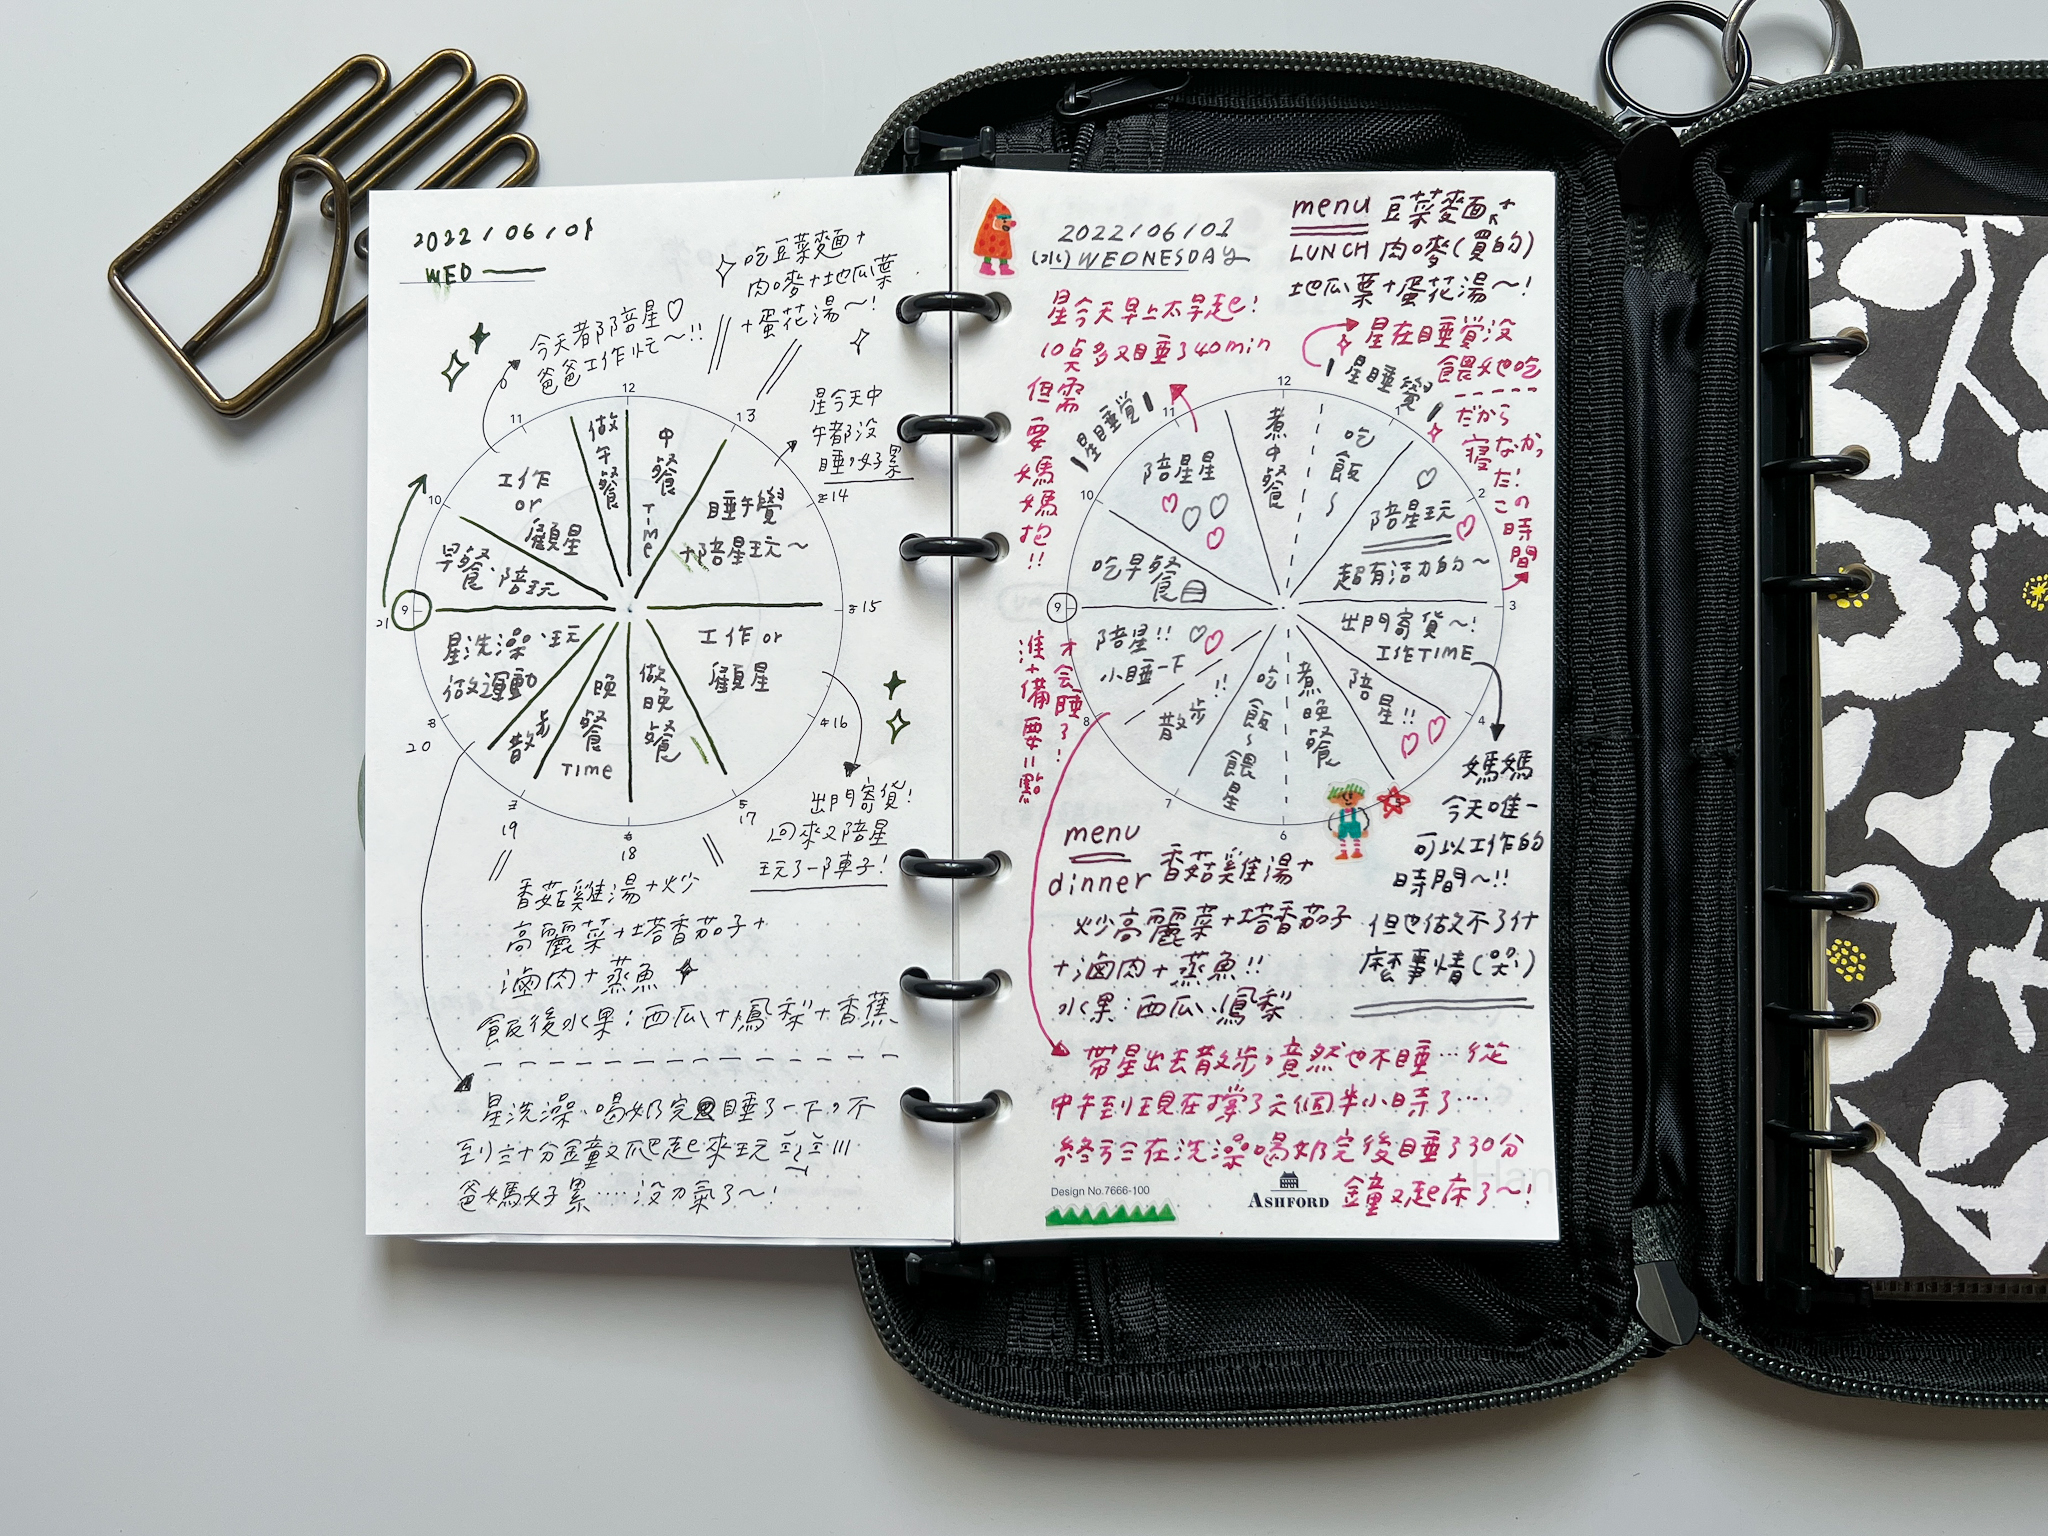 2022/06/01
WED
今天都陪星♡
爸爸工作忙～!!
吃豆菜麵+
肉嗲+地瓜葉
+蛋花湯～!
星今天中
午都沒
睡，好累
12
13
14
15
16
17
18
19
20
21
9
10
11
做午餐
中餐
TIME
睡午覺
+陪星玩～
工作 or
顧星
做晚餐
晚餐
TIME
散步
星洗澡、玩
做運動
早餐、陪玩
工作
or
顧星
出門寄貨!
回來又陪星
玩了一陣子!
香菇雞湯+炒
高麗菜+塔香茄子+
滷肉+蒸魚
飯後水果：西瓜+鳳梨+香蕉
星洗澡、喝奶完睡了一下，不
到三十分鐘又爬起來玩
爸媽好累……沒力氣了～!
2022/06/01
WEDNESDAY
menu 豆菜麵+
LUNCH 肉嗲(買的)
地瓜葉+蛋花湯～!
星今天早上太早起!
10點多又睡了40min
但需
要
媽
媽
抱!!
星在睡覺沒
餵她吃
星睡覺
星睡覺
だから
寝なかっ
た!
この
時
間
12
1
2
3
4
6
7
8
9
10
11
煮中餐
吃飯～
陪星玩
超有活力的～
出門寄貨～!
工作TIME
陪星!!
煮晚餐
吃飯～餵星
散步!!
陪星!!
小睡一下
吃早餐
陪星星
準備要11點
才会睡了!
媽媽
今天唯一
可以工作的
時間～!!
但也做不了什
麼事情(哭)
menu
dinner 香菇雞湯+
炒高麗菜+塔香茄子
+滷肉+蒸魚!!
水果：西瓜、鳳梨
帶星出去散步，竟然也不睡…從
中午到現在撐了六個半小時了….
終於在洗澡喝奶完後睡了30分
鐘又起床了～!
Design No.7666-100
ASHFORD